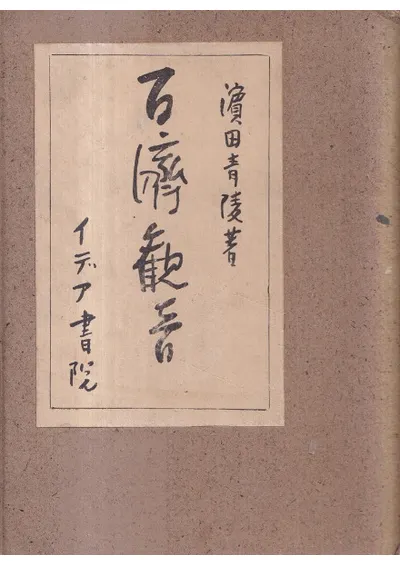 濱田青陵著
百濟觀音
イデア書院